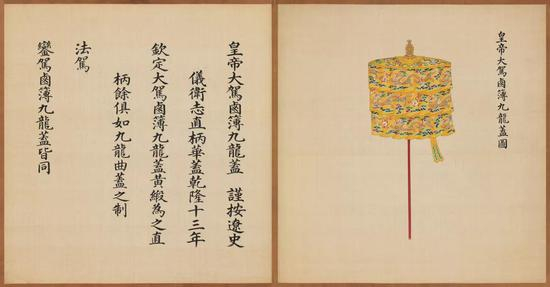 皇帝大駕鹵簿九龍蓋圖
皇帝大駕鹵簿九龍蓋　謹按遼史
儀衛志直柄華蓋乾隆十三年
欽定大駕鹵簿九龍蓋黃緞為之直
柄餘俱如九龍曲蓋之制
法駕
鑾駕鹵簿九龍蓋皆同